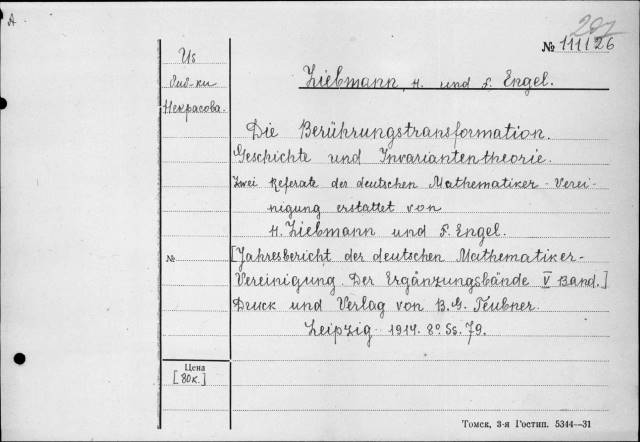 А
297
№ 111126
Из
биб-ки
Некрасова.
Liebmann, H. und F. Engel.
Die Berührungstransformation.
Geschichte und Invariantentheorie.
Zwei Referate der deutschen Mathematiker-Verei-
nigung erstattet von
H. Liebmann und F. Engel.
№
[Jahresbericht der deutschen Mathematiker-
Vereinigung. Der Ergänzungsbände V Band.]
Druck und Verlag von B.G. Teubner.
Leipzig 1914. 8° Ss. 79.
Цена
[80к.]
Томск, 3-я Гостип. 5344—31